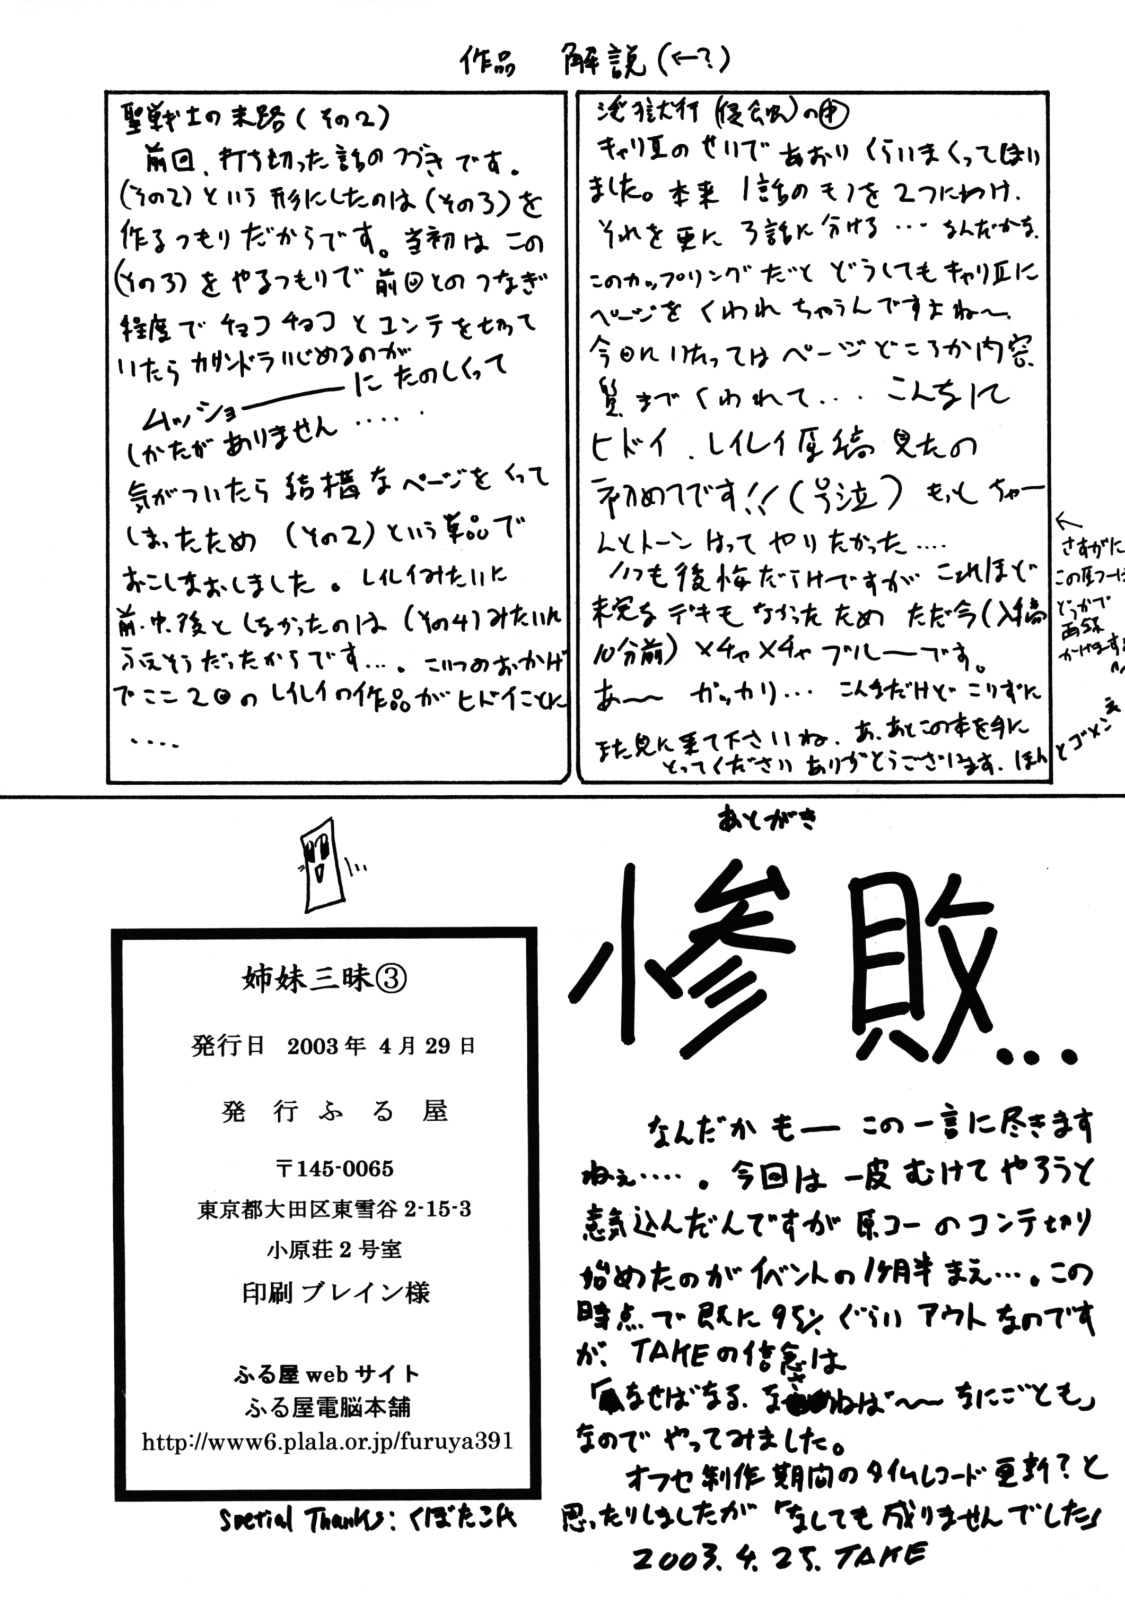 作品 解説(←?)
聖戦士の末路(その2)
前回、打ち切った話のつづきです。
(その2)という形にしたのは(その3)を
作るつもりだからです。当初はこの
(その3)をやるつもりで前回とのつなぎ
程度でチョコチョコとコンテを切って
いたらカサンドラいじめるのが
ムッショーーーに たのしくって
しかたがありません・・・・・
気がついたら結構なページをくって
しまったため (その2)という単品で
おこしなおしました。レイレイみたいに
前・中・後としなかったのは(その4)みたいに
ふえそうだったからです・・・。こいつのおかげ
でここ2回のレイレイの作品がヒドイことに
・・・・
淫獄行(侵蝕)の中
キャリアのせいであおりくらいまくってはいり
ました。本来 1話のモノを2つにわけ、
それを更に3話に分ける・・・なんだかな、
このカップリングだと どうしてもキャリアに
ページをくわれちゃうんですよね〜、
今回にいたってはページどころか内容、
質までくわれて・・・こんなに
ヒドイ、レイレイ原稿見たの
初めてです!!(号泣) もっとちゃー
んとトーンはってやりたかった・・・・
いつも後悔だらけですがこれほど
未完なデキもなかったため ただ今(入稿
10分前)メチャメチャブルーです。
あ〜〜 ガッカリ・・・ こんなだけど こりずに
また見に来て下さいね、あ、あとこの本を手に
とってくださり ありがとうございます。ほんとゴメンネ
←
さすがに
この原コーは
どうかで
再録
かけますよ
あとがき
惨敗...
なんだか もー この一言に尽きます
ねぇ・・・・・。今回は一皮むけてやろうと
意気込んだんですが原コーのコンテ切り
始めたのがイベントの1ヶ月半まえ・・・。この
時点で既に95%ぐらいアウトなのです
が、TAKEの信念は
「なせばなる、なさねば〜〜なにごとも」
なのでやってみました。
オフセ制作期間のタイムレコード更新?と
思ったりしましたが「なしても成りませんでした」
2003.4.25. TAKE
姉妹三昧③
発行日 2003年 4月29日
発 行 ふ る 屋
〒145-0065
東京都大田区東雪谷2-15-3
小原荘2号室
印刷 ブレイン様
ふる屋webサイト
ふる屋電脳本舗
http://www6.plala.or.jp/furuya391
Special Thanks: くぼたこん